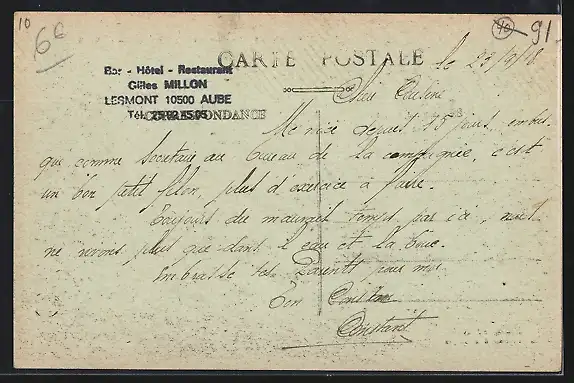 10
6€
40
91
CARTE POSTALE
Bar - Hôtel - Restaurant
Gilles MILLON
LESMONT 10500 AUBE
Tél.
CORRESPONDANCE
le 23/9/18
Me voici depuis 15 jours
que comme Secretaire au bureau de la compagnie, c'est
un bon petit filon, plus d'exercice à faire.
Toujours du mauvais temps par ici, nous
ne vivons plus que dans l'eau et la boue.
Embrasse tes Parents pour moi
Ton Cousin
Constant